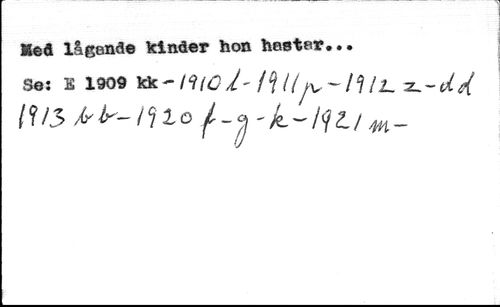 Med lågande kinder hon hastar...
Se: E 1909 kk - 1910 l - 1911 p - 1912 z - dd
1913 bb - 1920 f - g - k - 1921 m -